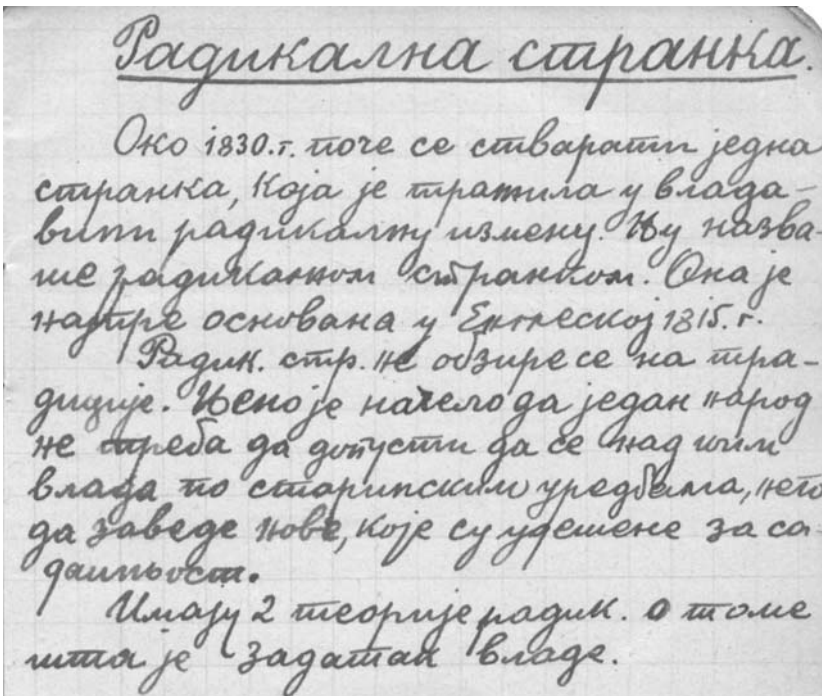 Радикална странка.
Око 1830. г. поче се стварати једна
странка, која је тражила у влада-
вини радикалну измену. Њу назва-
ше радикалном странком. Она је
најпре основана у Енглеској 1815. г.
Радик. стр. не обзире се на тра-
диције. Њено је начело да један народ
не треба да допусти да се над њим
влада по старинским уредбама, него
да заведе нове, које су удешене за са-
дашњост.
Имају 2 теорије радик. о томе
шта је задатак владе.